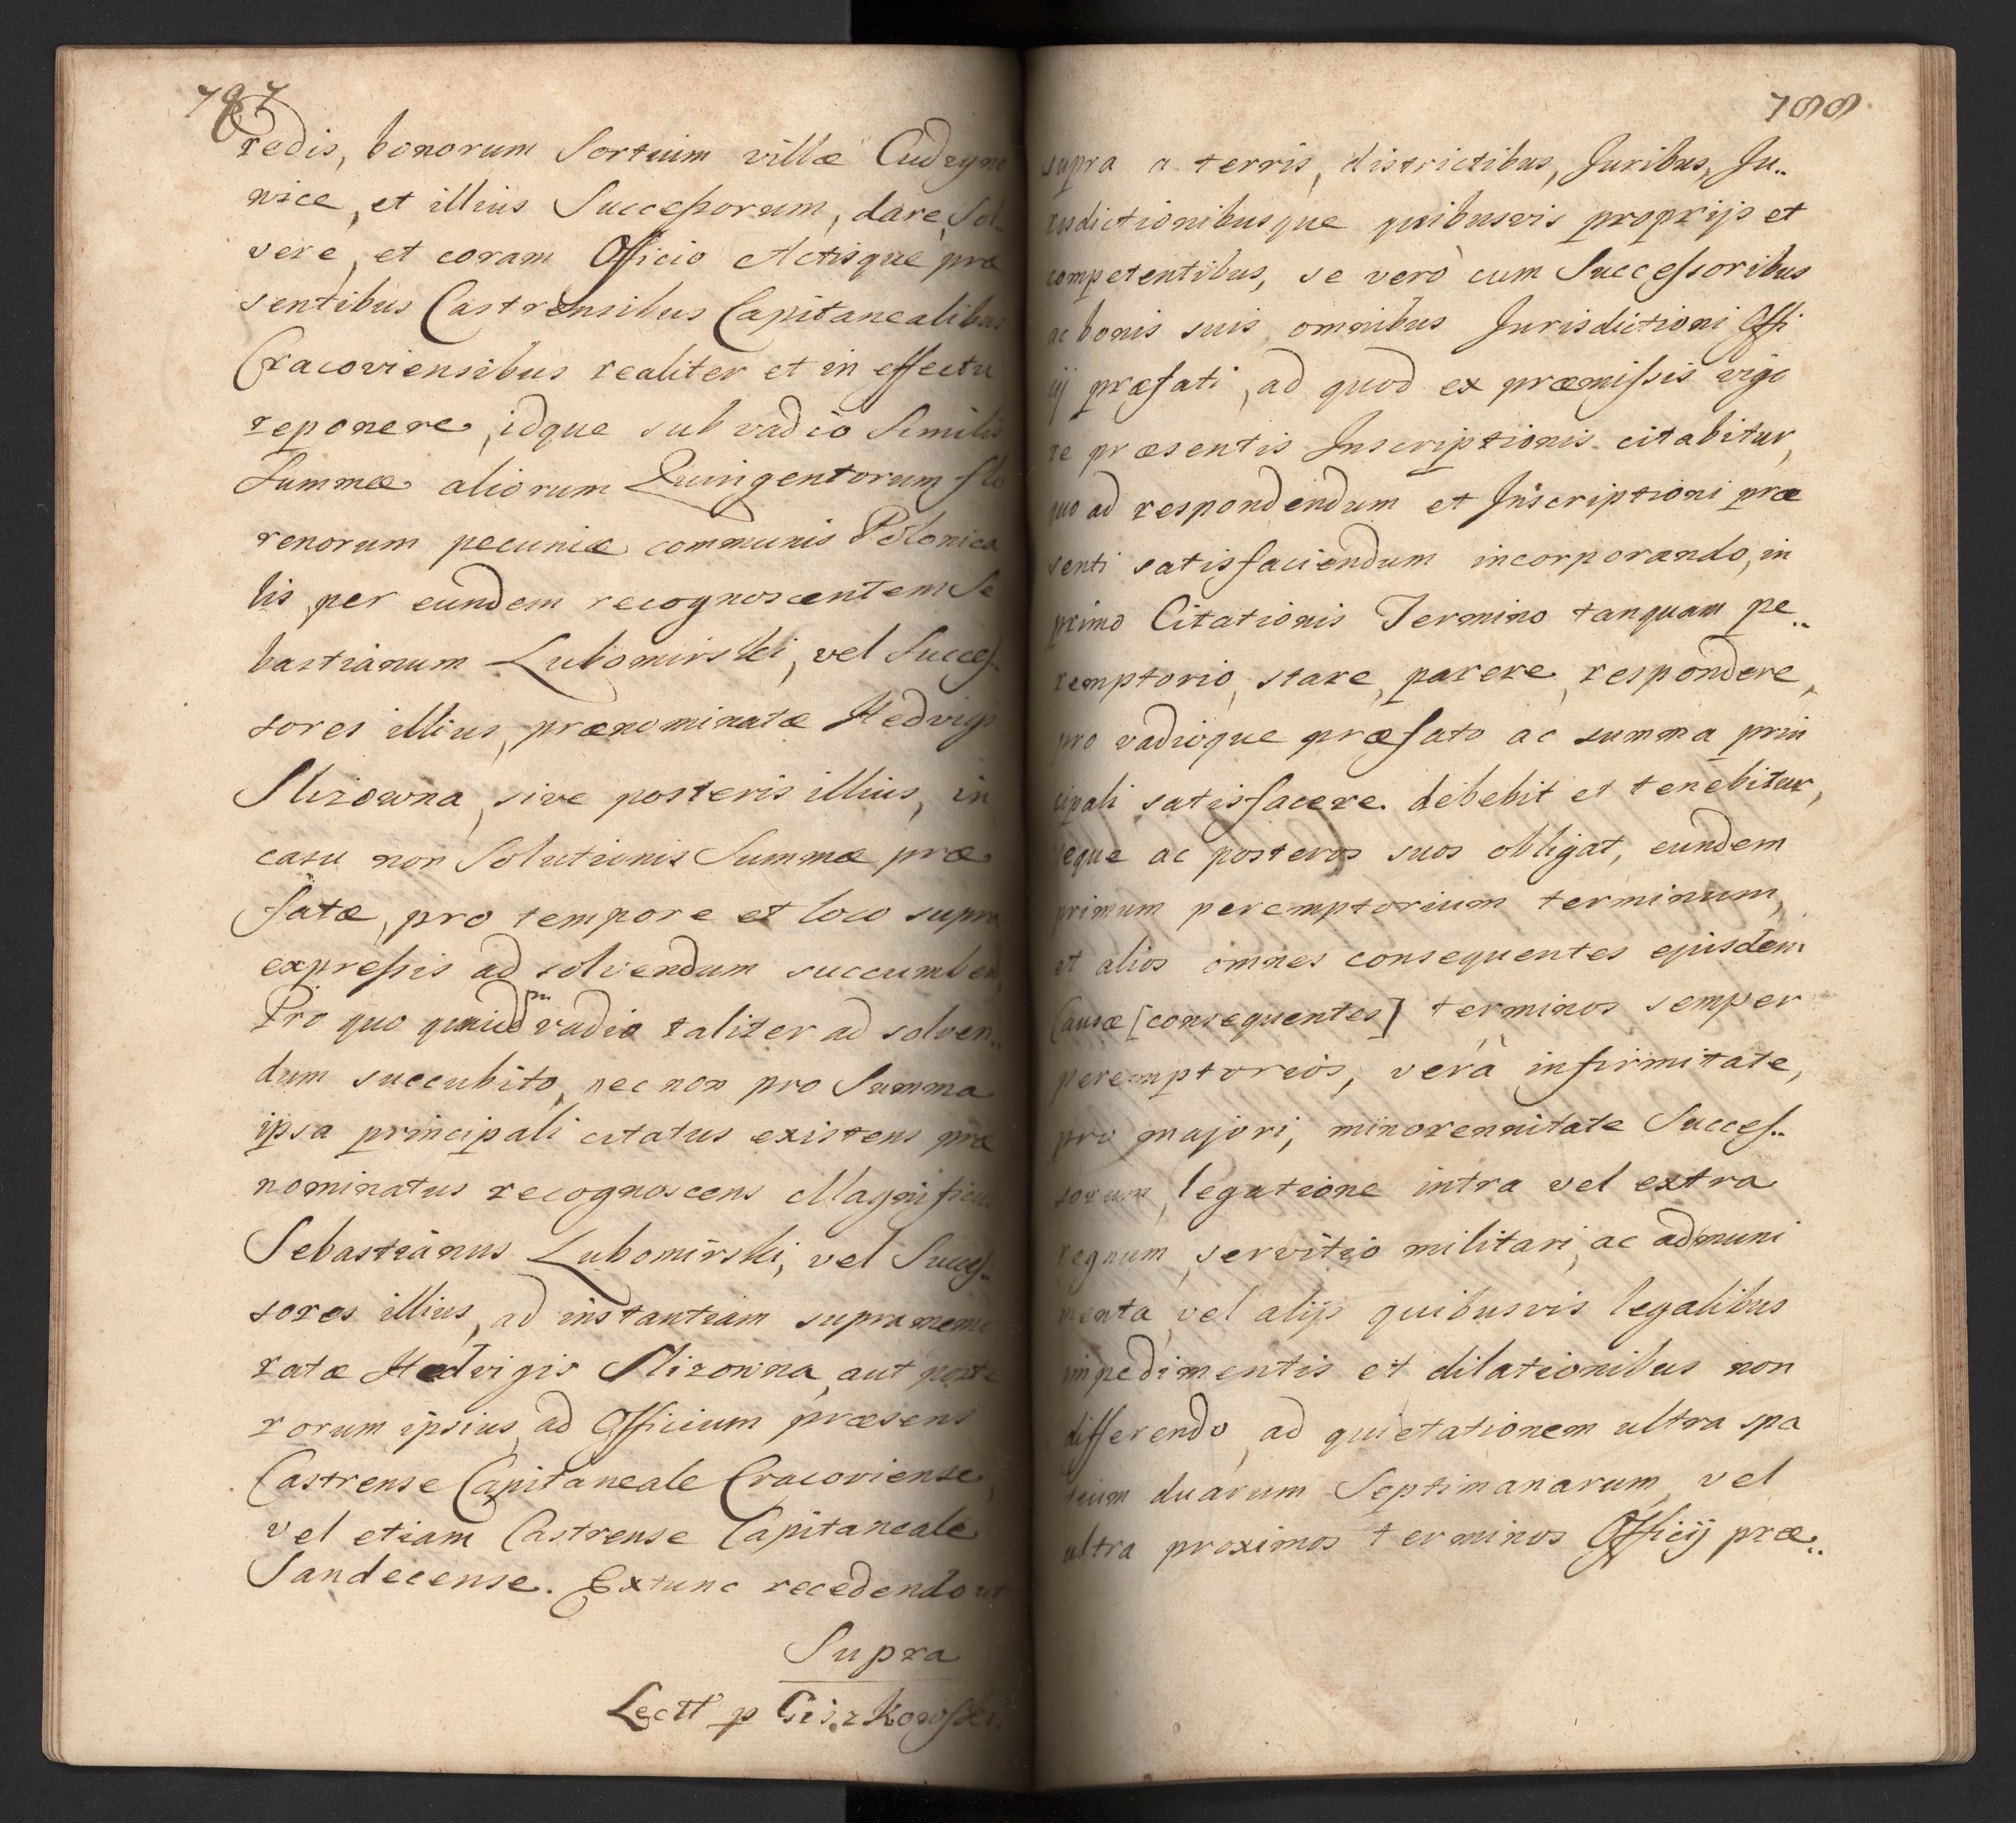 787
redis, bonorum Sortium villæ Cudzyno
nice, et illius Successorum, dare, Sol..
vere, et coram Officio Actisque præ
sentibus Castrensibus Capitanealibus
Cracoviensibus realiter et in effectu
reponere, idque sub vadio Similis
Summæ aliorum Quingentorum flo
renorum pecuniæ communis Polonica
lis per eundem recognoscentem Se
bastianum Lubomirski, vel Succes..
sores illius, prænominatæ Hedvigis
Slizowna, sive posteris illius, in
casu non Solutionis Summæ præ
fatæ, pro tempore et loco supra
expressis ad solvendum succumben
Pro quo quidem vadio taliter ad solven..
dum succubito, nec non pro Summa
ipsa principali citatus existens præ
nominatus recognoscens Magnificus
Sebastianus Lubomirski, vel Succes..
sores illius, ad instantiam supra memo
ratæ Hedvigis Slizowna, aut poste
rorum ipsius, ad Officium præsens
Castrense Capitaneale Cracoviense,
vel etiam Castrense Capitaneale
Sandecense. Extunc recedendo ut
Supra
Lectt p Ciszkowski.
788
supra a terris, districtibus, Juribus, Ju..
risdictionibusque quibusvis proprijs et
competentibus, se verò cum Successoribus
ac bonis suis omnibus Jurisdictioni Offi
cij præfati, ad quod ex præmissis vigo
re præsentis Inscriptionis citabitur,
quo ad respondendum et Inscriptioni præ
senti satisfaciendum incorporando, in
primo Citationis Termino tanquam pe..
remptorio, stare, parere, respondere,
pro vadioque præfato ac summa prin
cipali satisfacere debebit et tenebitur,
seque ac posteros suos obligat, eundem
primum peremptorium terminum,
et alios omnes consequentes ejusdem
Causæ [consequentes] terminos semper
peremptorios, verà infirmitate,
pro majori, minorennitate Succes..
sorum, legatione intra vel extra
regnum, servitio militari, ac ad muni
menta, vel alijs quibusvis legalibus
impedimentis et dilationibus non
differendo, ad quietationem ultra spa
tium duarum Septimanarum, vel
ultra proximos terminos Officij præ..